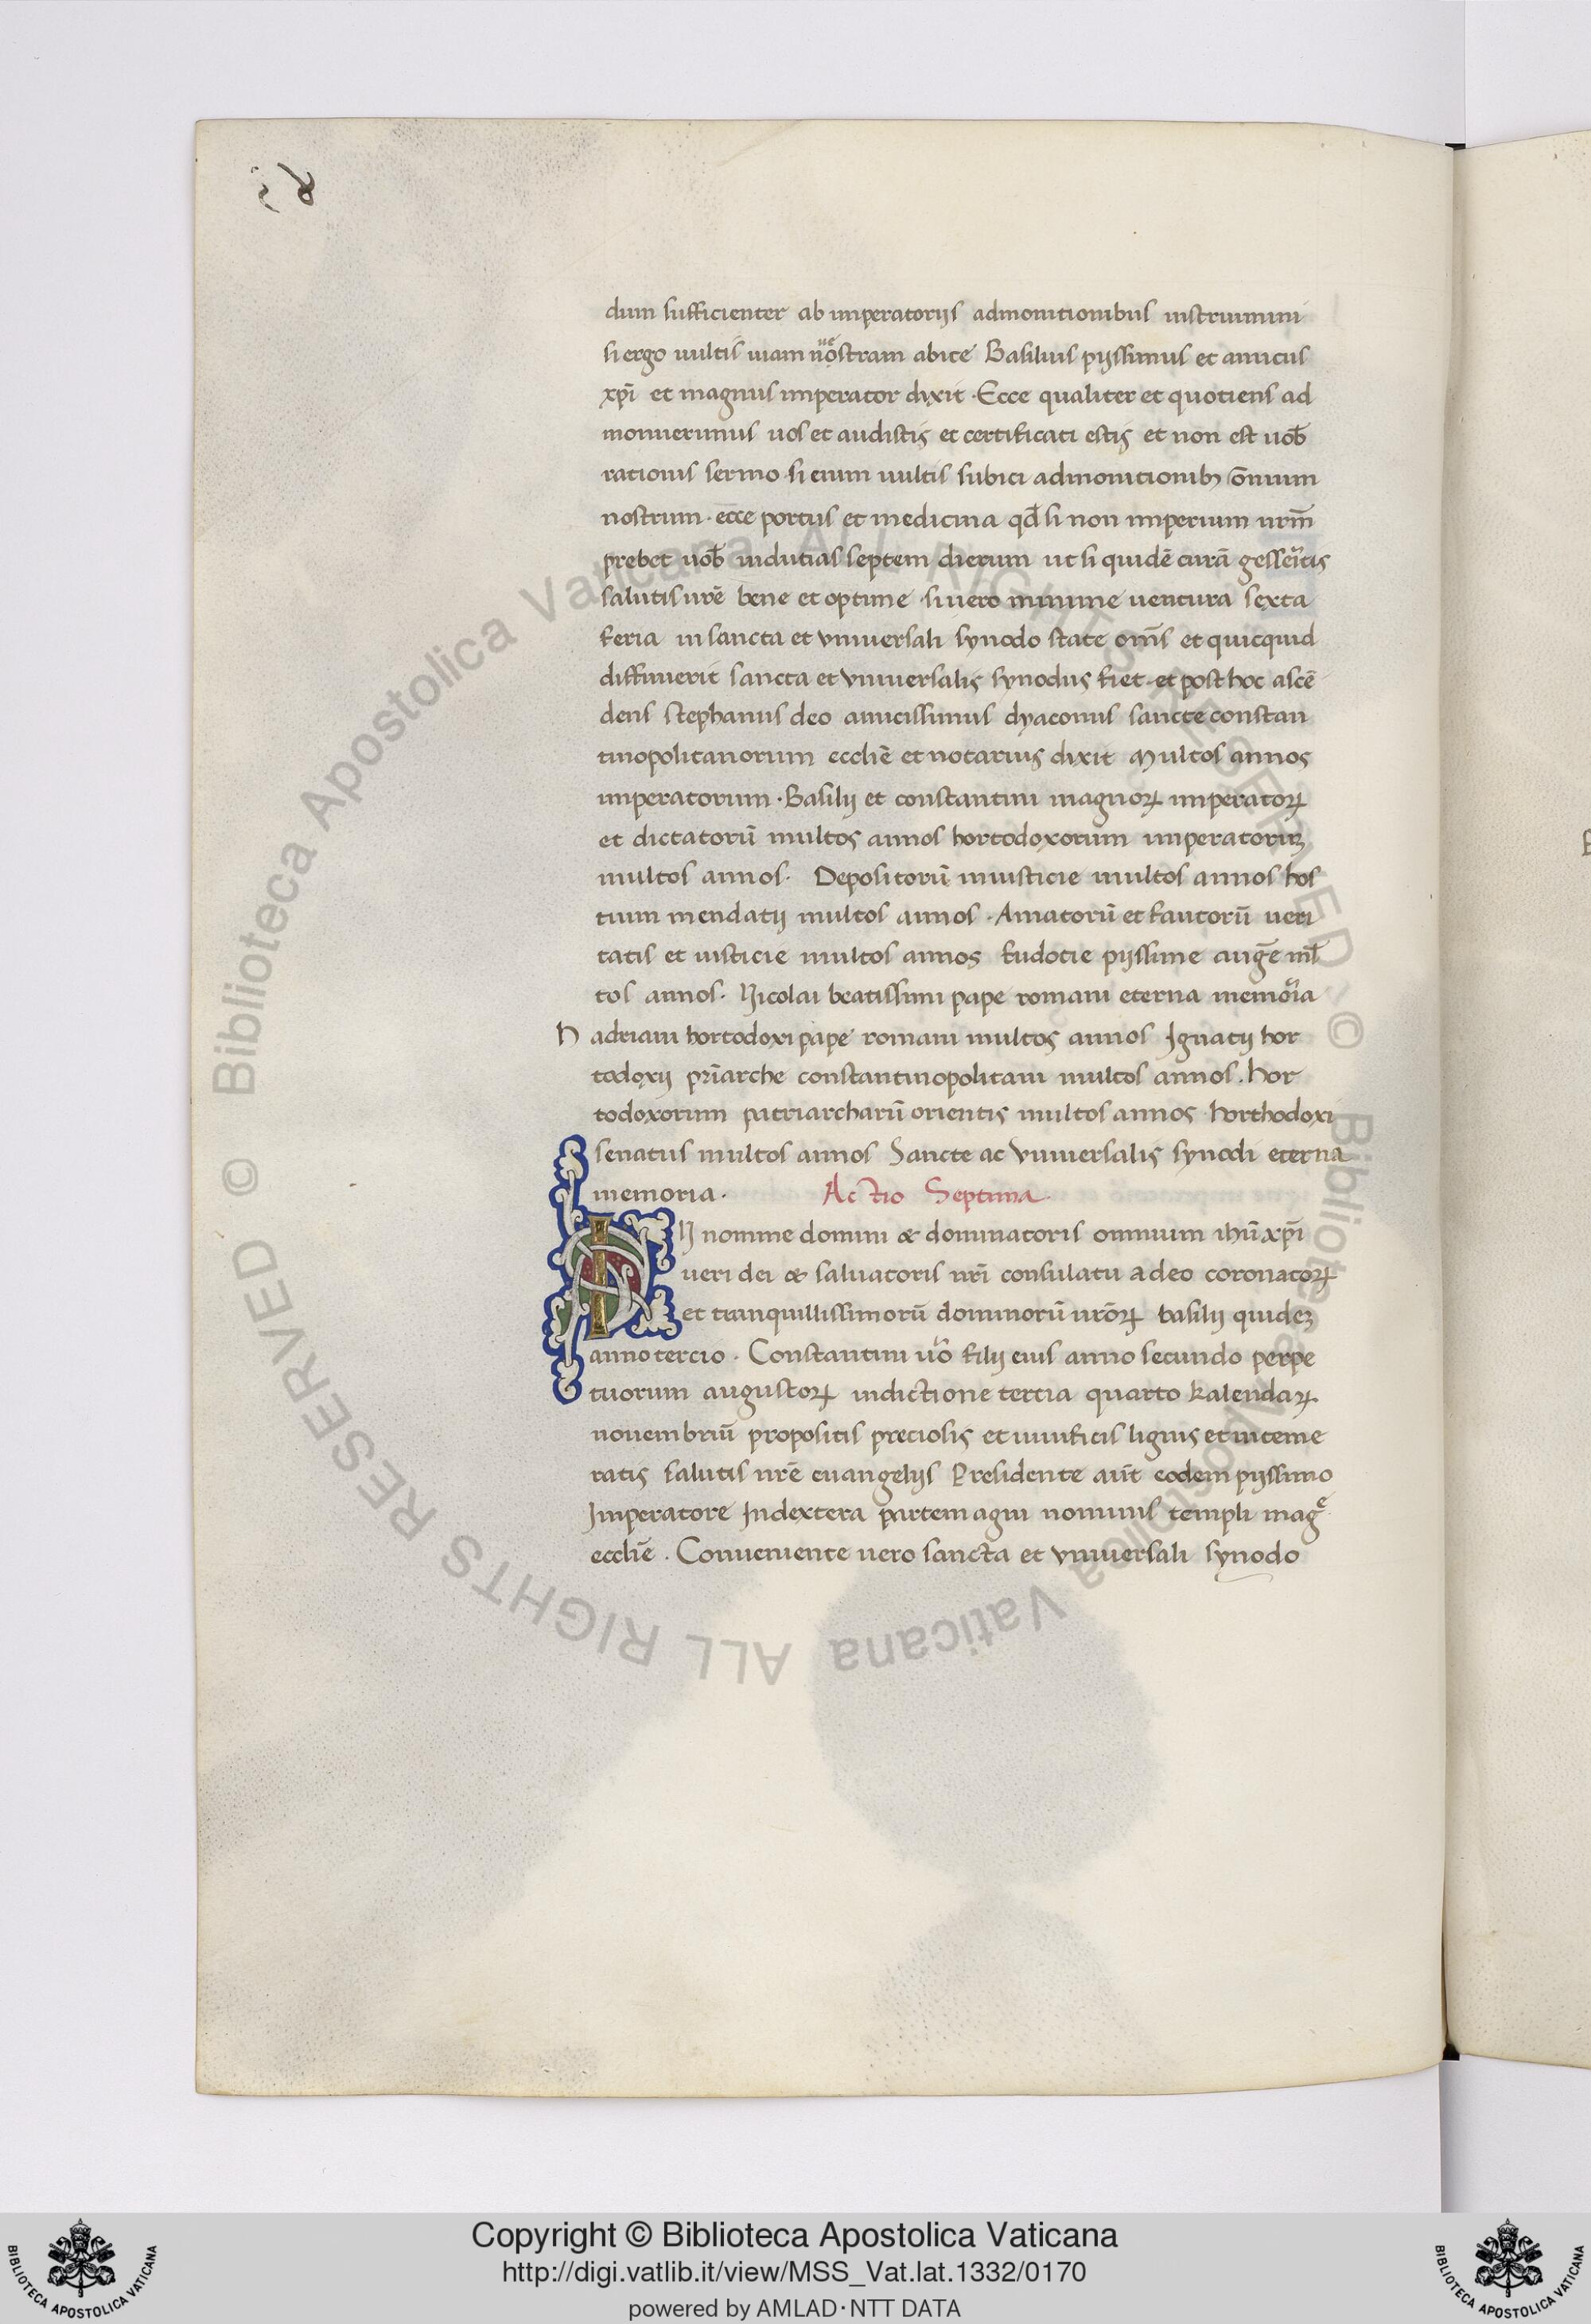 dum sufficienter ab imperatoriis admonitionibus instruimini
si ergo uultis uiam nostram abice Basilius pijssimus et amicus
xp̄i et magnus imperator dixit · Ecce qualiter et quotiens ad
monuerimus uos et audistis et certificati estis et non est uob̄
rationis sermo si enim uultis subici admonitionibꝫ om̄ium
nostrum · ecce portus et medicina qd̄ si non imperium nr̄m
prebet uob̄ indutias septem dierum ut si quidē curā gesseritis
salutis ur̄e bene et optime · si uero minime uentura sexta
feria in sancta et vniuersali synodo state om̄s et quicquid
diffinierit sancta et vniuersalis synodus fiet · et post hoc ascē
dens stephanus deo amicissimus dyaconus sancte constan
tinopolitanorum ecclīe et notarius dixit Multos annos
imperatorum · Basilij et constantini magnoꝝ imperatoꝝ
et dictatorū multos annos hortodoxorum imperatorūꝫ
multos annos · Depositorū iniusticie multos annos hos
tium mendatij multos annos · Amatorū et fautorū ueri
tatis et iusticie multos annos Eudotie pijssime auḡe ml̄
tos annos · Nicolai beatissimi pape romani eterna memoria
H adriani hortodoxi pape romani multos annos Ignatij hor
todoxij prīarche constantinopolitani multos annos · Hor
todoxorum patriarcharū orientis multos annos Horthodoxi
senatus multos annos Sancte ac vniuersalis synodi eterna
memoria ·
Actio Septima
IN nomine domini & dominatoris omnium ihū xp̄i
ueri dei & saluatoris nr̄i consulatu a deo coronatoꝝ
et tranquillissimorū dominorū nr̄oꝝ basilij quideꝫ
anno tercio · Constantini uo filij eius anno secundo perpe
tuorum augustoꝝ indictione tertia quarto kalendaꝝ
nouembriū propositis preciosis et uiuificis lignis et inteme
ratis salutis nr̄e euangelijs Presidente aūt eodem pijssimo
Imperatore In dextera parte magni nominis templi mag
ecclīe · Conueniente uero sancta et vniuersali synodo
© Biblioteca Apostolica Vaticana ALL RIGHTS RESERVED © Biblioteca Apostolica Vaticana ALL RIGHTS RESERVED
Copyright © Biblioteca Apostolica Vaticana
http://digi.vatlib.it/view/MSS_Vat.lat.1332/0170
powered by AMLAD·NTT DATA
BIBLIOTECA APOSTOLICA VATICANA
BIBLIOTECA APOSTOLICA VATICANA